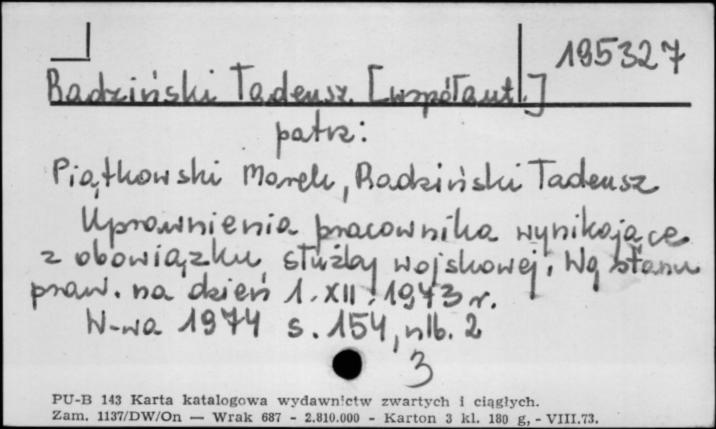 195327
Radziński Tadeusz. [współaut.]
patrz:
Piątkowski Marek, Radziński Tadeusz
Uprawnienia pracownika wynikające
z obowiązku służby wojskowej. Wg stanu
praw. na dzień 1.XII.1973 r.
W-wa 1974 s. 154, nlb. 2
3
PU-B 143 Karta katalogowa wydawnictw zwartych i ciągłych.
Zam. 1137/DW/On — Wrak 687 - 2.810.000 - Karton 3 kl. 180 g, - VIII.73.